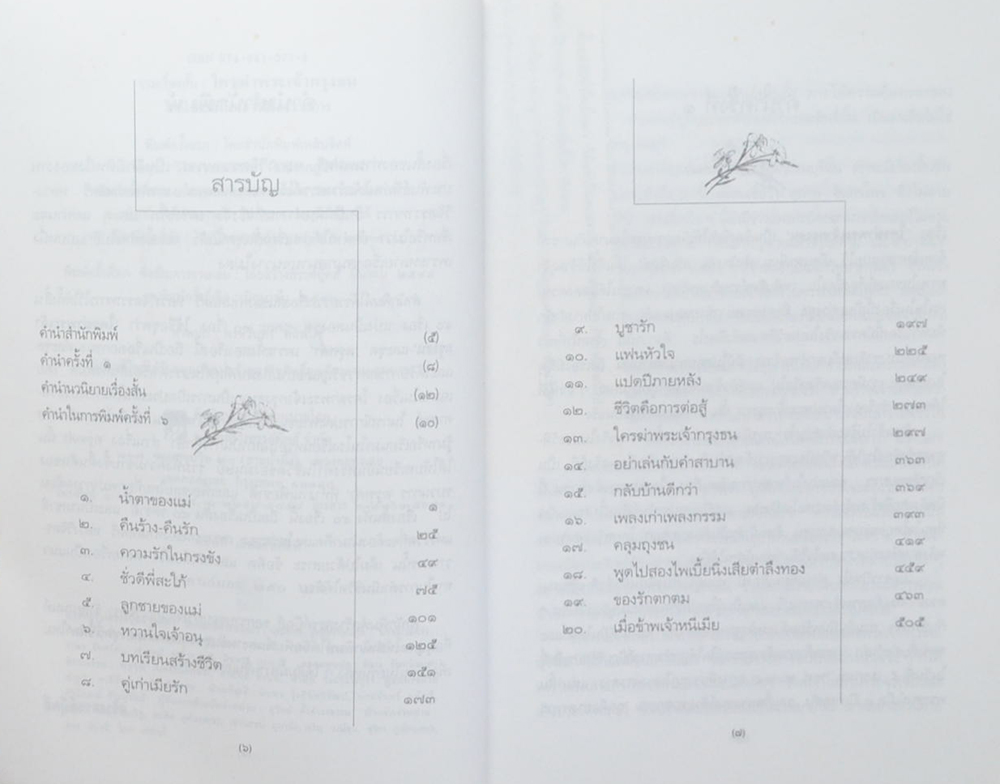 สารบัญ
คำนำสำนักพิมพ์ (๕)
คำนำครั้งที่ ๑ (๘)
คำนำนวนิยายเรื่องสั้น (๑๒)
คำนำในการพิมพ์ครั้งที่ ๖ (๑๐)
๑. น้ำตาของแม่ ๑
๒. คืนร้าง-คืนรัก ๒๕
๓. ความรักในกรงขัง ๔๙
๔. ชั่วดีพี่สะใภ้ ๗๕
๕. ลูกชายของแม่ ๑๐๑
๖. หวานใจเจ้าอนุ ๑๒๕
๗. บทเรียนสร้างชีวิต ๑๕๑
๘. คู่เก่าเมียรัก ๑๗๓
(๖)
๙. บูชารัก ๑๙๗
๑๐. แฟนหัวใจ ๒๒๕
๑๑. แปดปีภายหลัง ๒๔๙
๑๒. ชีวิตคือการต่อสู้ ๒๗๓
๑๓. ใครฆ่าพระเจ้ากรุงธน ๒๙๗
๑๔. อย่าเล่นกับคำสาบาน ๓๖๓
๑๕. กลับบ้านดีกว่า ๓๖๙
๑๖. เพลงเก่าเพลงกรรม ๓๙๓
๑๗. คลุมถุงชน ๔๑๙
๑๘. พูดไปสองไพเบี้ยนิ่งเสียตำลึงทอง ๔๕๙
๑๙. ของรักตกตม ๔๖๓
๒๐. เมื่อข้าพเจ้าหนีเมีย ๕๐๕
(๗)